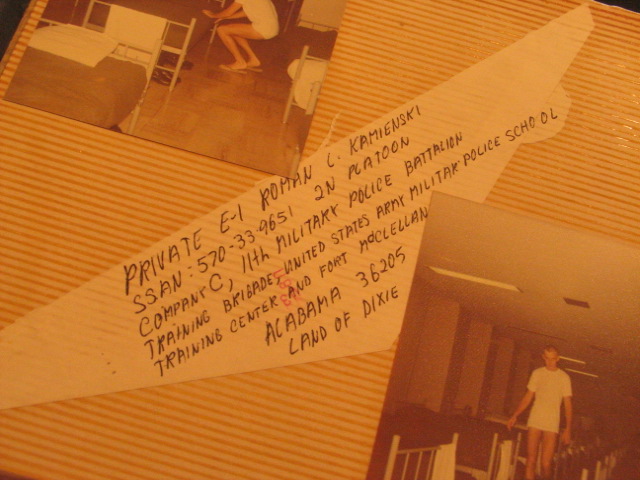 PRIVATE E-1 ROMAN L. KAMIENSKI
SSAN: 570-33-9651 2N PLATOON
COMPANY C, 11th MILITARY POLICE BATTALION
TRAINING BRIGADE, UNITED STATES ARMY MILITAR POLICE SCHOOL
TRAINING CENTER AND FORT MCCLELLAN
ALABAMA 36205
LAND OF DIXIE